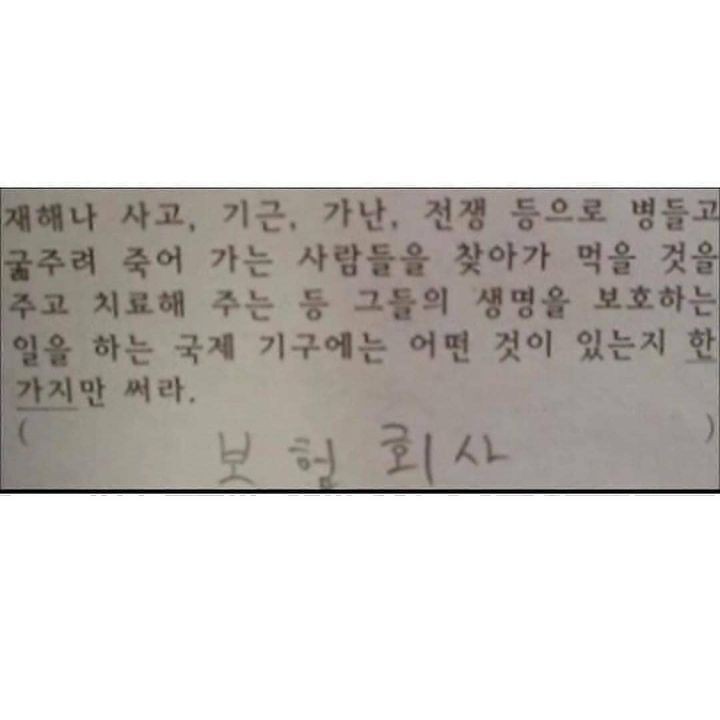 재해나 사고, 기근, 가난, 전쟁 등으로 병들고
굶주려 죽어 가는 사람들을 찾아가 먹을 것을
주고 치료해 주는 등 그들의 생명을 보호하는
일을 하는 국제 기구에는 어떤 것이 있는지 한
가지만 써라.
( 보험회사 )